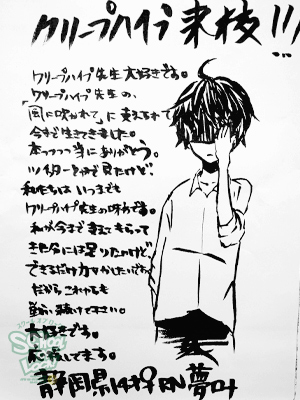 クリープハイプ来校!!!
クリープハイプ先生大好きです。
クリープハイプ先生の、
「風に吹かれて」に支えられて
今まで生きてきました。
本っっっ当にありがとう。
ツイッターとかで見たけど、
私たちは いつまでも
クリープハイプ先生の味方です。
私が今まで支えてもらって
きた分には足りないけど、
できるだけ力になりたいです。
だから、これからも
歌い続けて下さい。
大好きです。
応援してます。
静岡県 14才 RN 夢